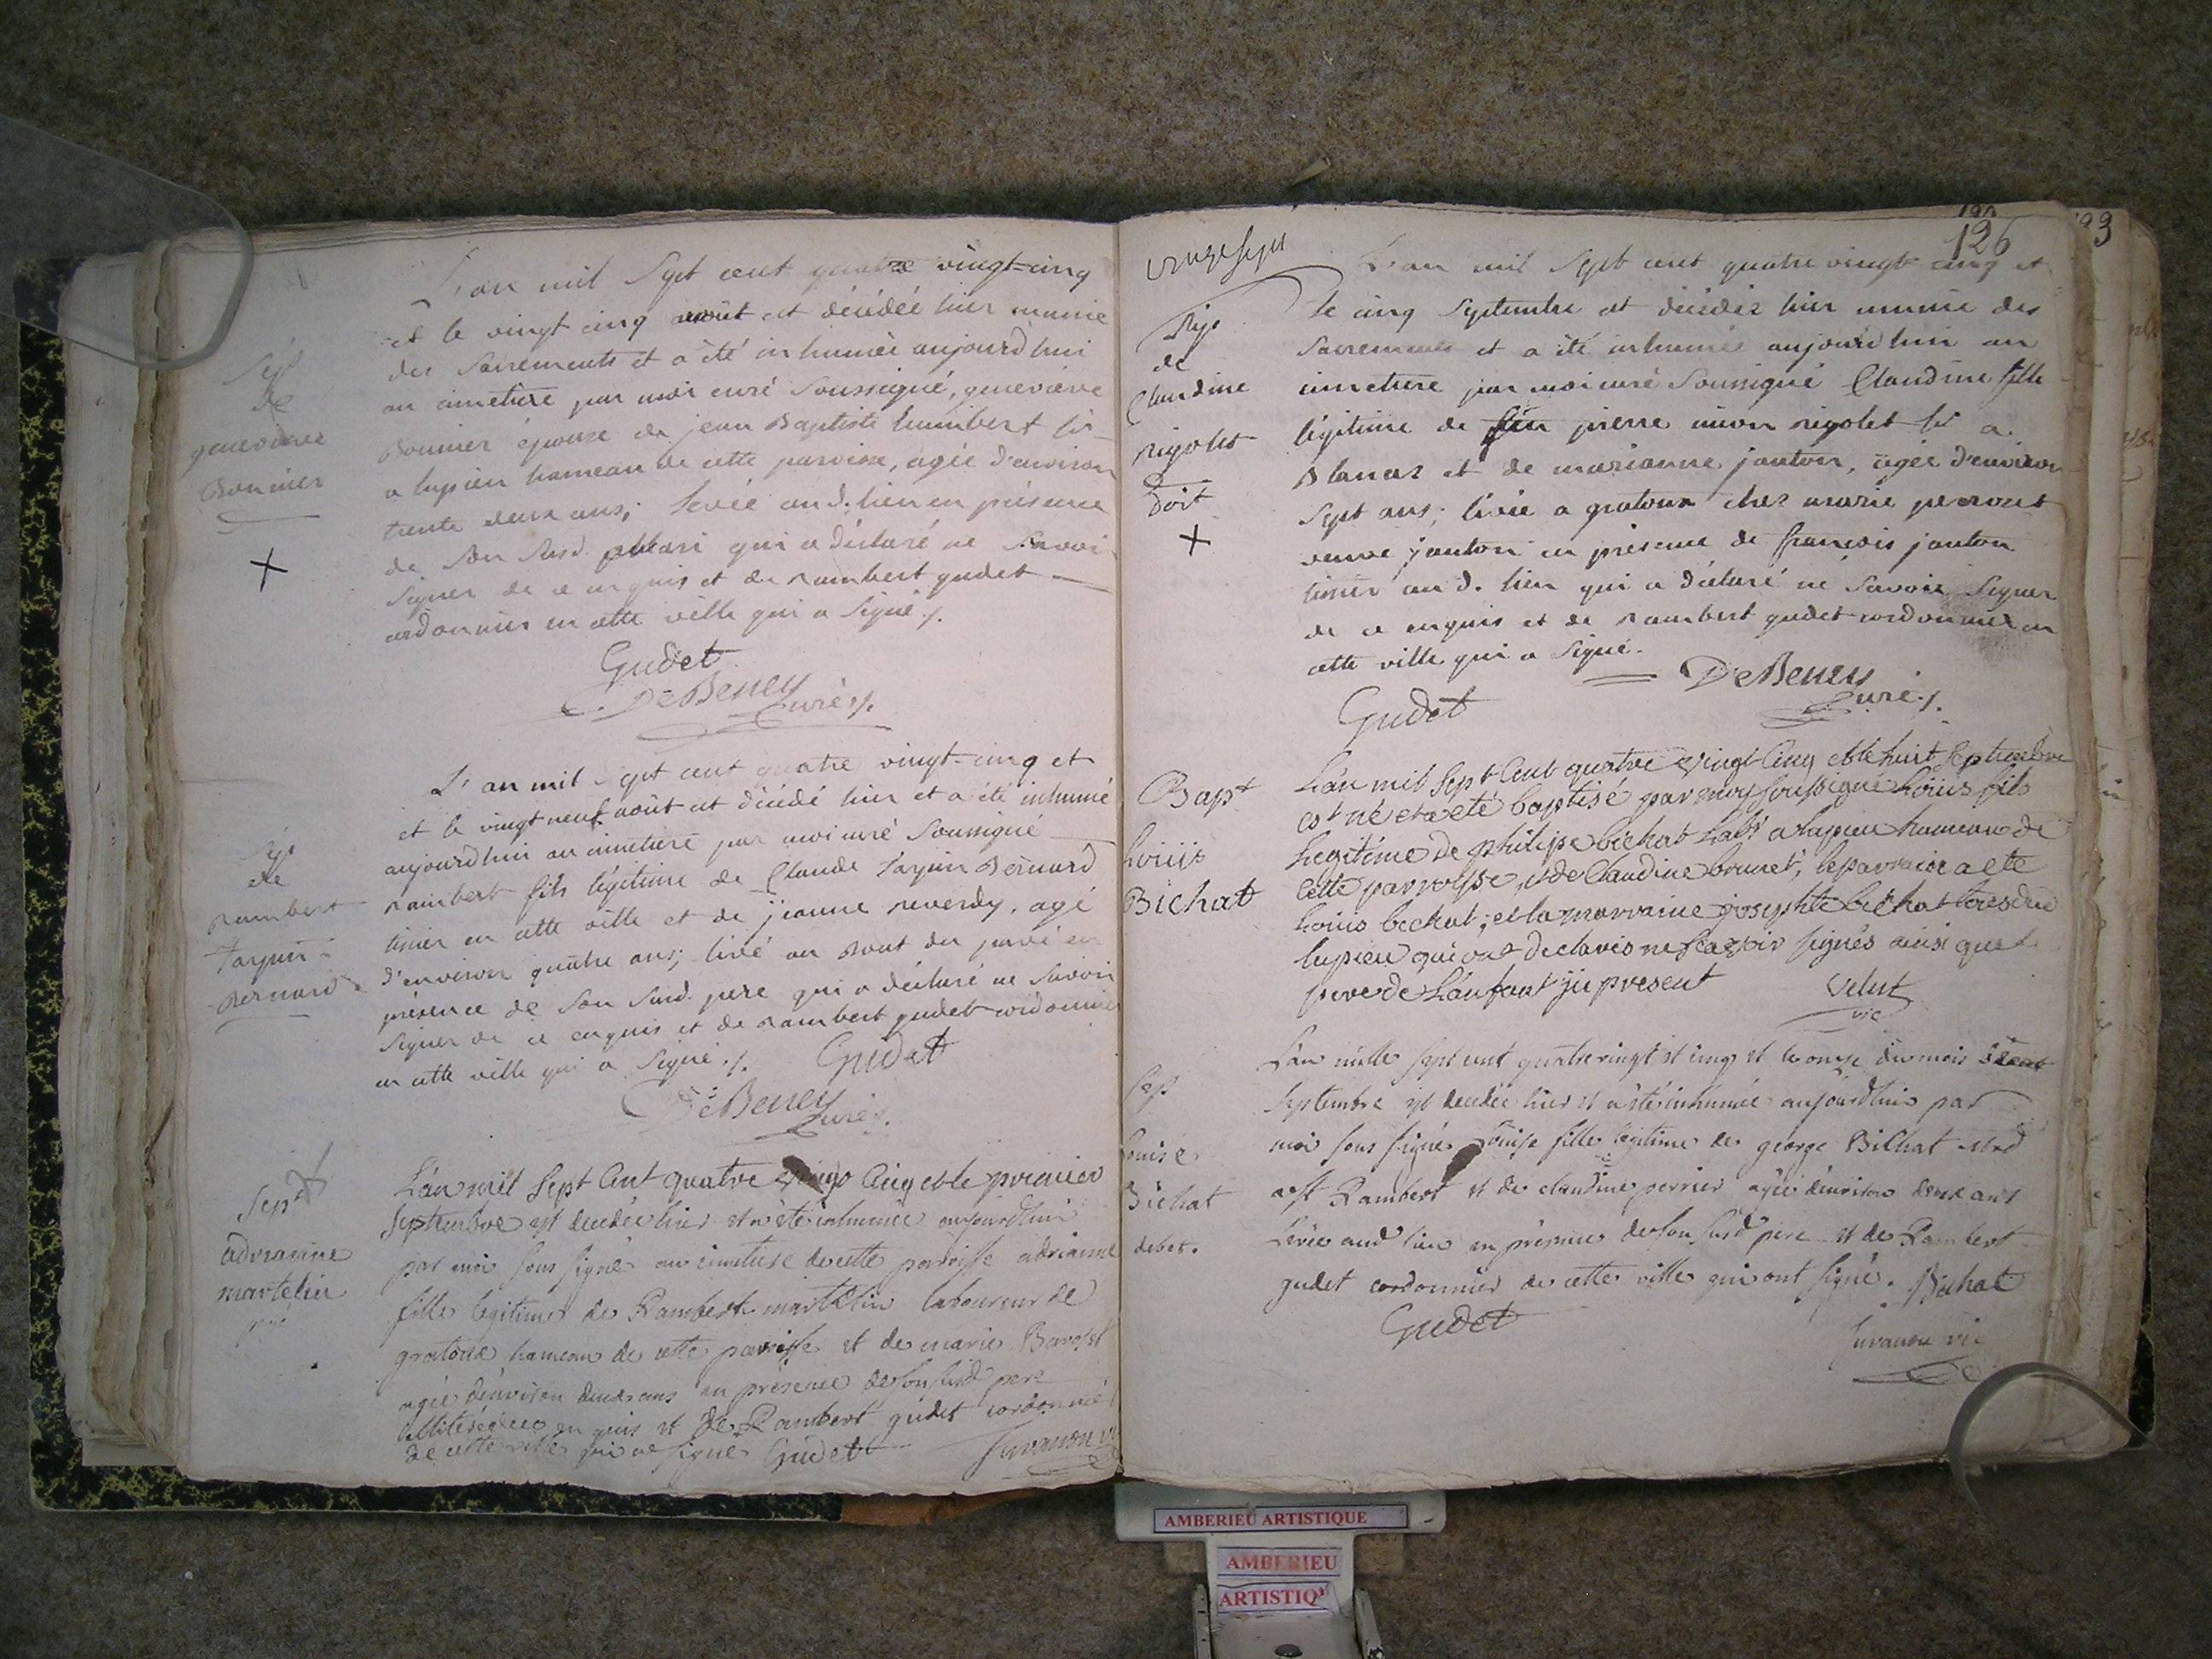 L'an mil Sept cent quatre vingt-cinq
et le vingt cinq août est décédée hier munie
des Sacrements et a été inhumée aujourd'hui
au cimetiere par moi curé Soussigné, geneviéve
Bonnier épouse de jean Baptiste humbert
a lupieu hameau de cette paroisse, agée d'environ
trente deux ans; levée aud. lieu en présence
de Son Susd. mari qui a déclaré ne Savoir
Signer de ce enquis et de Rambert gudet
cordonnier en cette ville qui a Signé /.
Gudet
DeBeney
Curé /.
Sép
de
genevieve
Bonnier
L'an mil Sept cent quatre vingt-cinq et
et le vingt neuf août est décédé hier et a été inhumé
aujourd'hui au cimetiere par moi curé Soussigné
Rambert fils légitime de Claude Tarpin Bernard
en cette ville et de jeanne reverdy, agé
d'environ quatre ans; levé au Bout du pavé en
présence de Son Susd. pere qui a déclaré ne Savoir
Signer de ce enquis et de Rambert gudet cordonnier
en cette ville qui a Signé /. Gudet
DeBeney
Curé /.
Sép
de
Rambert
Tarpin
Bernard
L'an mil Sept Cent quatre vingt Cinq et le premier
Septembre est decedée hier et a été inhumée aujourdhui
par moi sous signé au cimetiere de cette paroisse adrianne
fille legitime de Rambert martelin laboureur de
gratoux hameau de cette paroisse et de marie
agée d'environ deux ans en présence de son susd pere
enquis et de Rambert gudet cordonnier
de cette ville qui a signé Gudet Juvanon vi
Sept
adrianne
martelin
126
L'an mil Sept cent quatre vingt cinq et
le cinq Septembre est décédée hier munie des
Sacrements et a été inhumée aujourd'hui au
cimetiere par moi curé Soussigné Claudine fille
légitime de feu pierre rigolet a
Blanaz et de marianne janton, agée d'environ
Sept ans; levée a gratoux chez marie perrouet
veuve janton en présence de françois janton
aud. lieu qui a déclaré ne Savoir Signer
de ce enquis et de Rambert gudet cordonnier en
cette ville qui a Signé.
DeBeney
Curé /.
Gudet
Sép
de
Claudine
rigolet
doit
L'an mil Sept Cent quatre vingt Cinq et le huit Septembre
est né et a été baptisé par moy soussigné Loüis fils
Legitime de philipe bichat habt a lupieu hameau de
cette parroisse, et de Claudine brunet, le parrain a ete
Loüis bichat, et la marraine josephte bichat tous de
lupieu qui ont declarés ne scavoir signés ainsi que le
pere de L'anfant ji present
Velut
vic
Bapt
Loüis
Bichat
L'an mille sept cent quatre vingt et cinq et le onze du mois
Septembre est decedée hier et a été inhumée aujourdhui par
moi sous signé Loüise fille legitime de george Bichat
Rambert et de claudine perrier agée d'environ deux ans
Levée aud lieu en présence de son susd pere et de Rambert
gudet cordonnier de cette ville qui ont signé. Bichat
Gudet
Juvanon vic
Sep
Louise
Bichat
debet.
AMBERIEU ARTISTIQUE
AMBERIEU
ARTISTIQ